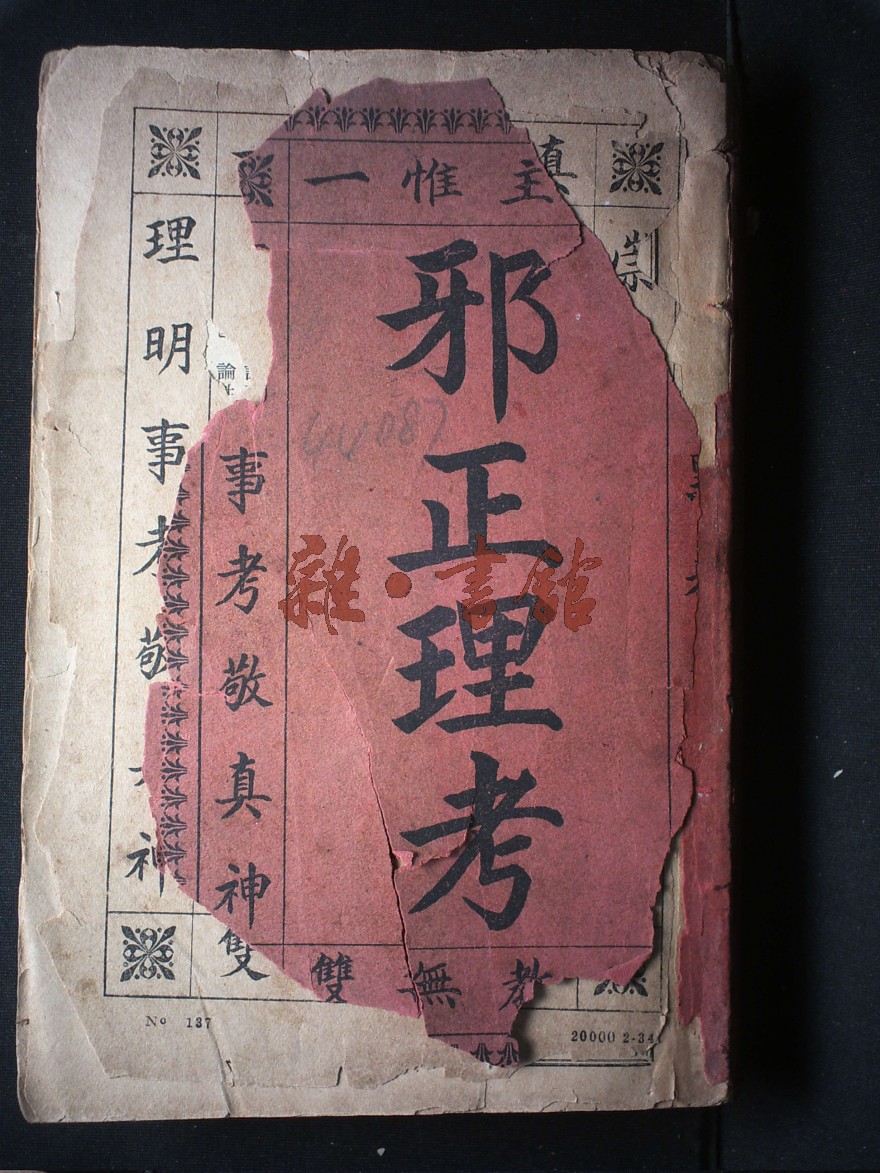 真
主惟一
崇
邪正理考
44087
論
事考敬真神
理明事考敬神
教無雙
雙
雜·書館
No 137
20000 2-34